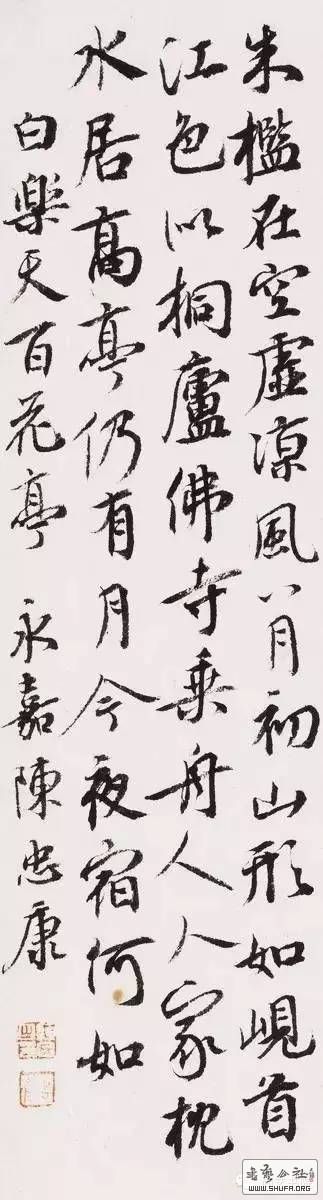 朱檻在空虛涼風八月初山形如峴首
江色似桐廬佛寺乘舟入人家枕
水居高亭仍有月今夜宿何如
白樂天百花亭 永嘉陳忠康
书艺公社
WWW.SHUFA.ORG